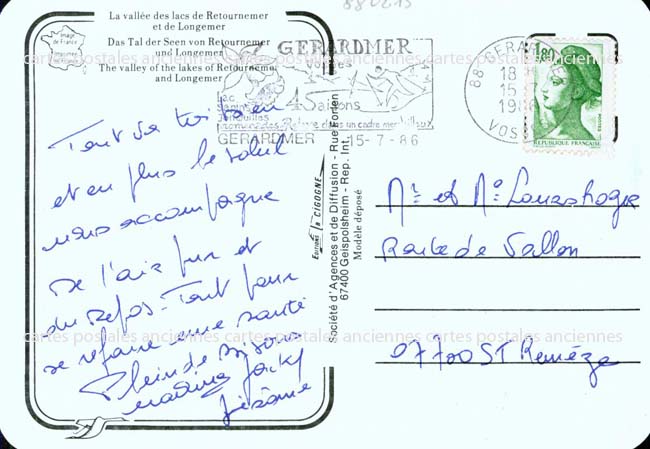 88 0215
Image
de France
La vallée des lacs de Retournemer
et de Longemer
Das Tal der Seen von Retournemer
und Longemer
The valley of the lakes of Retournemer
and Longemer
GERARDMER
Vosges
Lac
4 Saisons
dans un cadre merveilleux
GERARDMER 15-7-86
88 GERARDMER
18
15
19
VOSGES
1,80
REPUBLIQUE FRANÇAISE
cartes postales anciennes cartes postales anciennes cartes postales anciennes
Tout va très bien
et en plus le soleil
nous accompagne
De l'air pur et
du repos - Tout pour
se refaire une santé
Plein de bisous
Jacky
Jérôme
Editions la CIGOGNE
Société d'Agences et de Diffusion - Rue Forlen
67400 Geispolsheim - Rep. Int.
Modèle déposé
Mr et Me
Route de Vallon
07700 ST Remèze
cartes postales anciennes cartes postales anciennes cartes postales anciennes